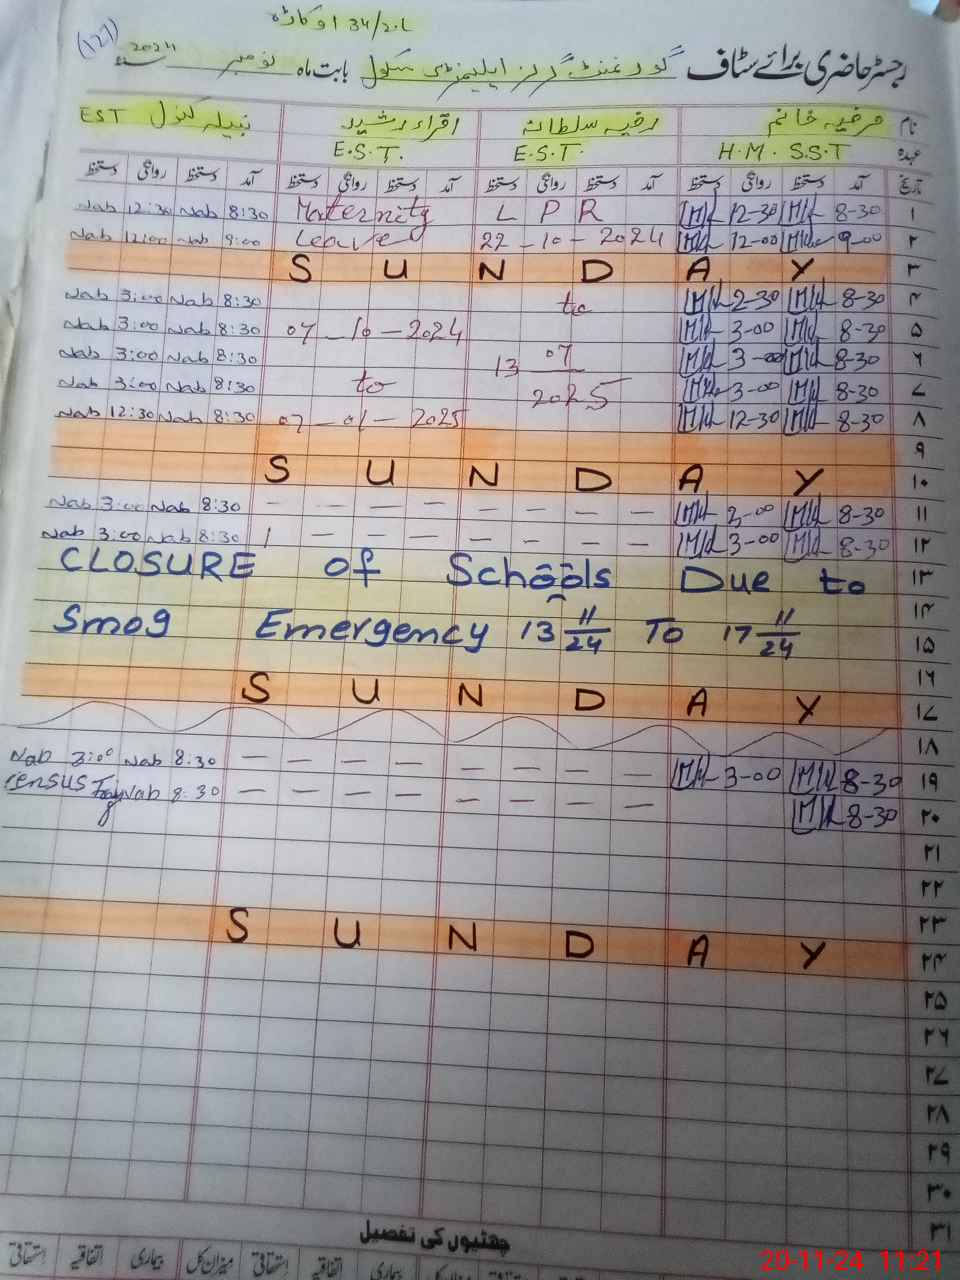 34/2.L اوکاڑہ
(127)
رجسٹر حاضری برائے سٹاف گورنمنٹ گرلز ایلیمنٹری سکول بابت ماہ نومبر سنہ 2024
نام صرفیہ خانم رفیہ سلطانہ اقراء رشید نبیلہ کنول EST
عہدہ H.M. S.S.T E.S.T. E.S.T.
تاریخ آمد دستخط روانگی دستخط آمد دستخط روانگی دستخط آمد دستخط روانگی دستخط آمد دستخط روانگی دستخط
Nab 12:30 Nab 8:30 Maternity L P R 12-30 8-30 ۱
Nab 12:00 Nab 9:00 Leave 22-10-2024 12-00 9-00 ۲
S U N D A Y ۳
Nab 3:00 Nab 8:30 to 2-30 8-30 ۴
Nab 3:00 Nab 8:30 07-10-2024 3-00 8-30 ۵
Nab 3:00 Nab 8:30 13 07 3-00 8-30 ۶
Nab 3:00 Nab 8:30 to 2025 3-00 8-30 ۷
Nab 12:30 Nab 8:30 07-01-2025 12-30 8-30 ۸
۹
S U N D A Y ۱۰
Nab 3:00 Nab 8:30 — — — — — — — — 3-00 8-30 ۱۱
Nab 3:00 Nab 8:30 — — — — — — — 3-00 8-30 ۱۲
CLOSURE of Schools Due to ۱۳
۱۴
Smog Emergency 13 11/24 To 17 11/24 ۱۵
۱۶
S U N D A Y ۱۷
۱۸
Nab 3:00 Nab 8.30 — — — — — — — — 3-00 8-30 ۱۹
census Nab 8:30 — — — — — — — — 8-30 ۲۰
۲۱
۲۲
۲۳
S U N D A Y ۲۴
۲۵
۲۶
۲۷
۲۸
۲۹
۳۰
۳۱
چھٹیوں کی تفصیل
استحقاقی اتفاقیہ بیماری میزان کل استحقاقی اتفاقیہ بیماری میزان کل
20-11-24 11:21